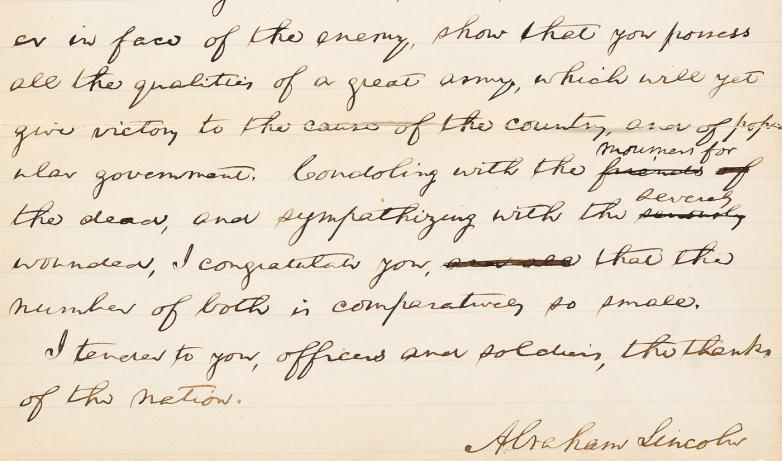 er in face of the enemy, show that you possess
all the qualities of a great army, which will yet
give victory to the cause of the country, and of popu-
mourners for
ular government. Condoling with the friends of
severely
the dead, and sympathizing with the seriously
wounded, I congratulate you, and all that the
number of both is comparatively so small.
I tender to you, officers and soldiers, the thanks
of the nation.
Abraham Lincoln